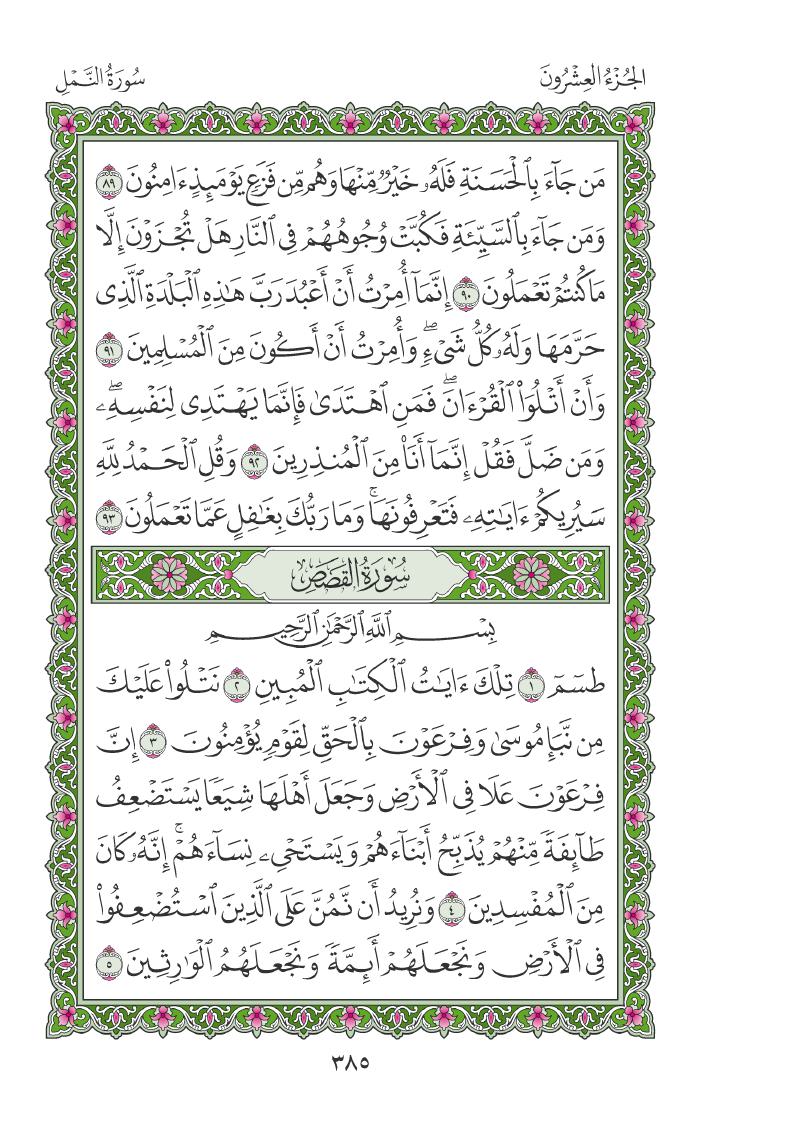 الجُزْءُ العِشْرُونَ
سُورَةُ النَّمْلِ
مَن جَآءَ بِٱلْحَسَنَةِ فَلَهُۥ خَيْرٌ مِّنْهَا وَهُم مِّن فَزَعٍ يَوْمَئِذٍ ءَامِنُونَ ٨٩
وَمَن جَآءَ بِٱلسَّيِّئَةِ فَكُبَّتْ وُجُوهُهُمْ فِى ٱلنَّارِ هَلْ تُجْزَوْنَ إِلَّا
مَا كُنتُمْ تَعْمَلُونَ ٩٠ إِنَّمَآ أُمِرْتُ أَنْ أَعْبُدَ رَبَّ هَٰذِهِ ٱلْبَلْدَةِ ٱلَّذِى
حَرَّمَهَا وَلَهُۥ كُلُّ شَىْءٍۖ وَأُمِرْتُ أَنْ أَكُونَ مِنَ ٱلْمُسْلِمِينَ ٩١
وَأَنْ أَتْلُوَا۟ ٱلْقُرْءَانَۖ فَمَنِ ٱهْتَدَىٰ فَإِنَّمَا يَهْتَدِى لِنَفْسِهِۦۖ
وَمَن ضَلَّ فَقُلْ إِنَّمَآ أَنَا۠ مِنَ ٱلْمُنذِرِينَ ٩٢ وَقُلِ ٱلْحَمْدُ لِلَّهِ
سَيُرِيكُمْ ءَايَٰتِهِۦ فَتَعْرِفُونَهَاۚ وَمَا رَبُّكَ بِغَٰفِلٍ عَمَّا تَعْمَلُونَ ٩٣
سُورَةُ القَصَصِ
بِسْمِ ٱللَّهِ ٱلرَّحْمَٰنِ ٱلرَّحِيمِ
طسٓمٓ ١ تِلْكَ ءَايَٰتُ ٱلْكِتَٰبِ ٱلْمُبِينِ ٢ نَتْلُوا۟ عَلَيْكَ
مِن نَّبَإِ مُوسَىٰ وَفِرْعَوْنَ بِٱلْحَقِّ لِقَوْمٍ يُؤْمِنُونَ ٣ إِنَّ
فِرْعَوْنَ عَلَا فِى ٱلْأَرْضِ وَجَعَلَ أَهْلَهَا شِيَعًا يَسْتَضْعِفُ
طَآئِفَةً مِّنْهُمْ يُذَبِّحُ أَبْنَآءَهُمْ وَيَسْتَحْىِۦ نِسَآءَهُمْۚ إِنَّهُۥ كَانَ
مِنَ ٱلْمُفْسِدِينَ ٤ وَنُرِيدُ أَن نَّمُنَّ عَلَى ٱلَّذِينَ ٱسْتُضْعِفُوا۟
فِى ٱلْأَرْضِ وَنَجْعَلَهُمْ أَئِمَّةً وَنَجْعَلَهُمُ ٱلْوَٰرِثِينَ ٥
٣٨٥